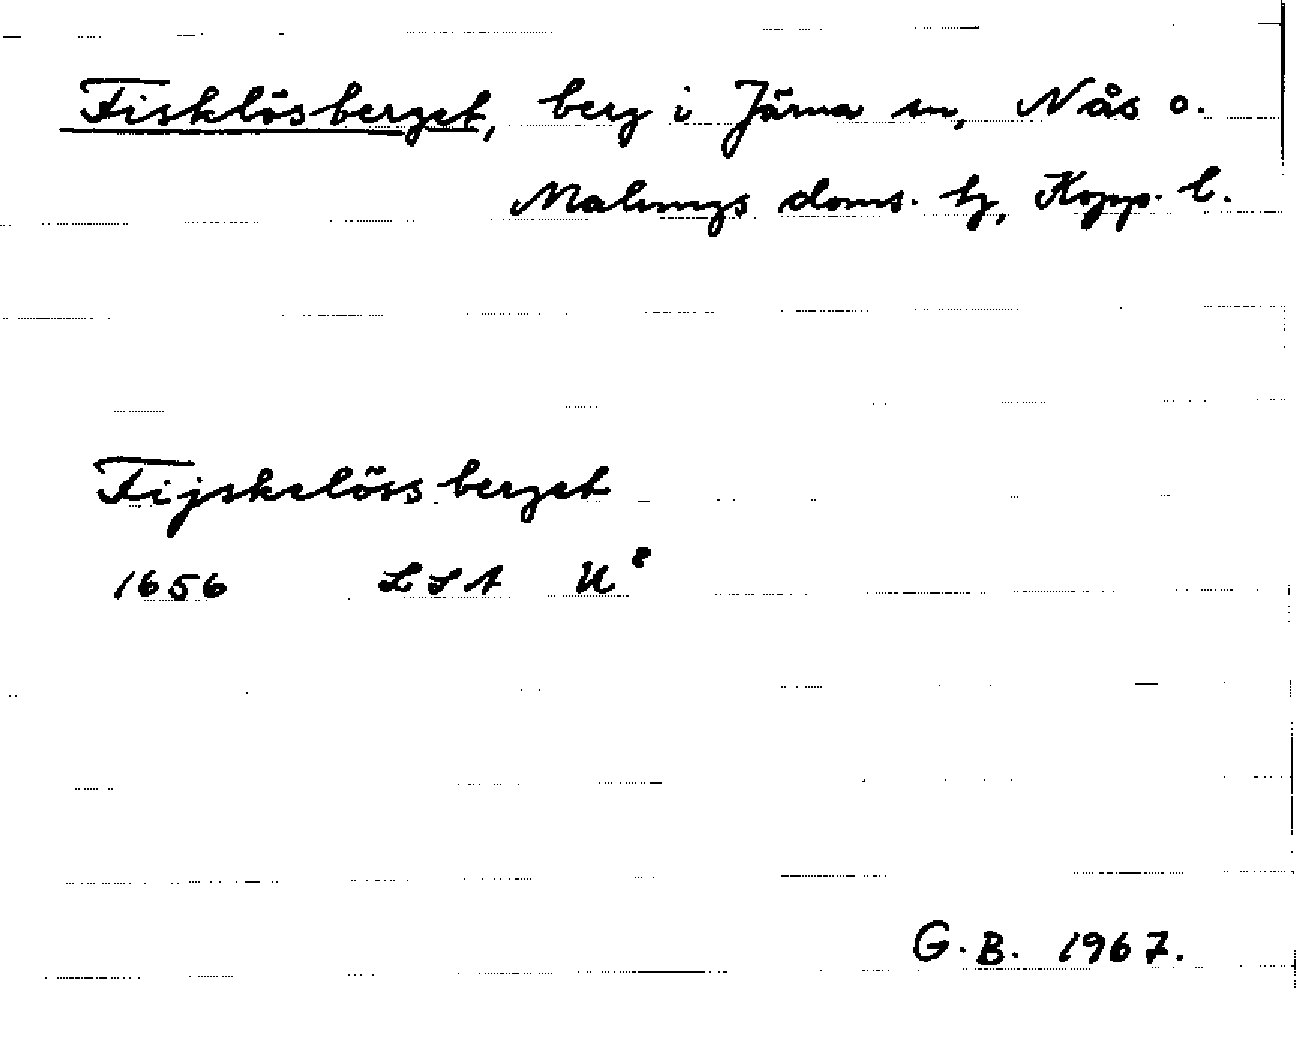 Fisklösberget, berg i Järna sn, Nås o.
Malungs doms. hg, Kopp. l.
Fijskelössberget
1656 LSA U⁸
G.B. 1967.